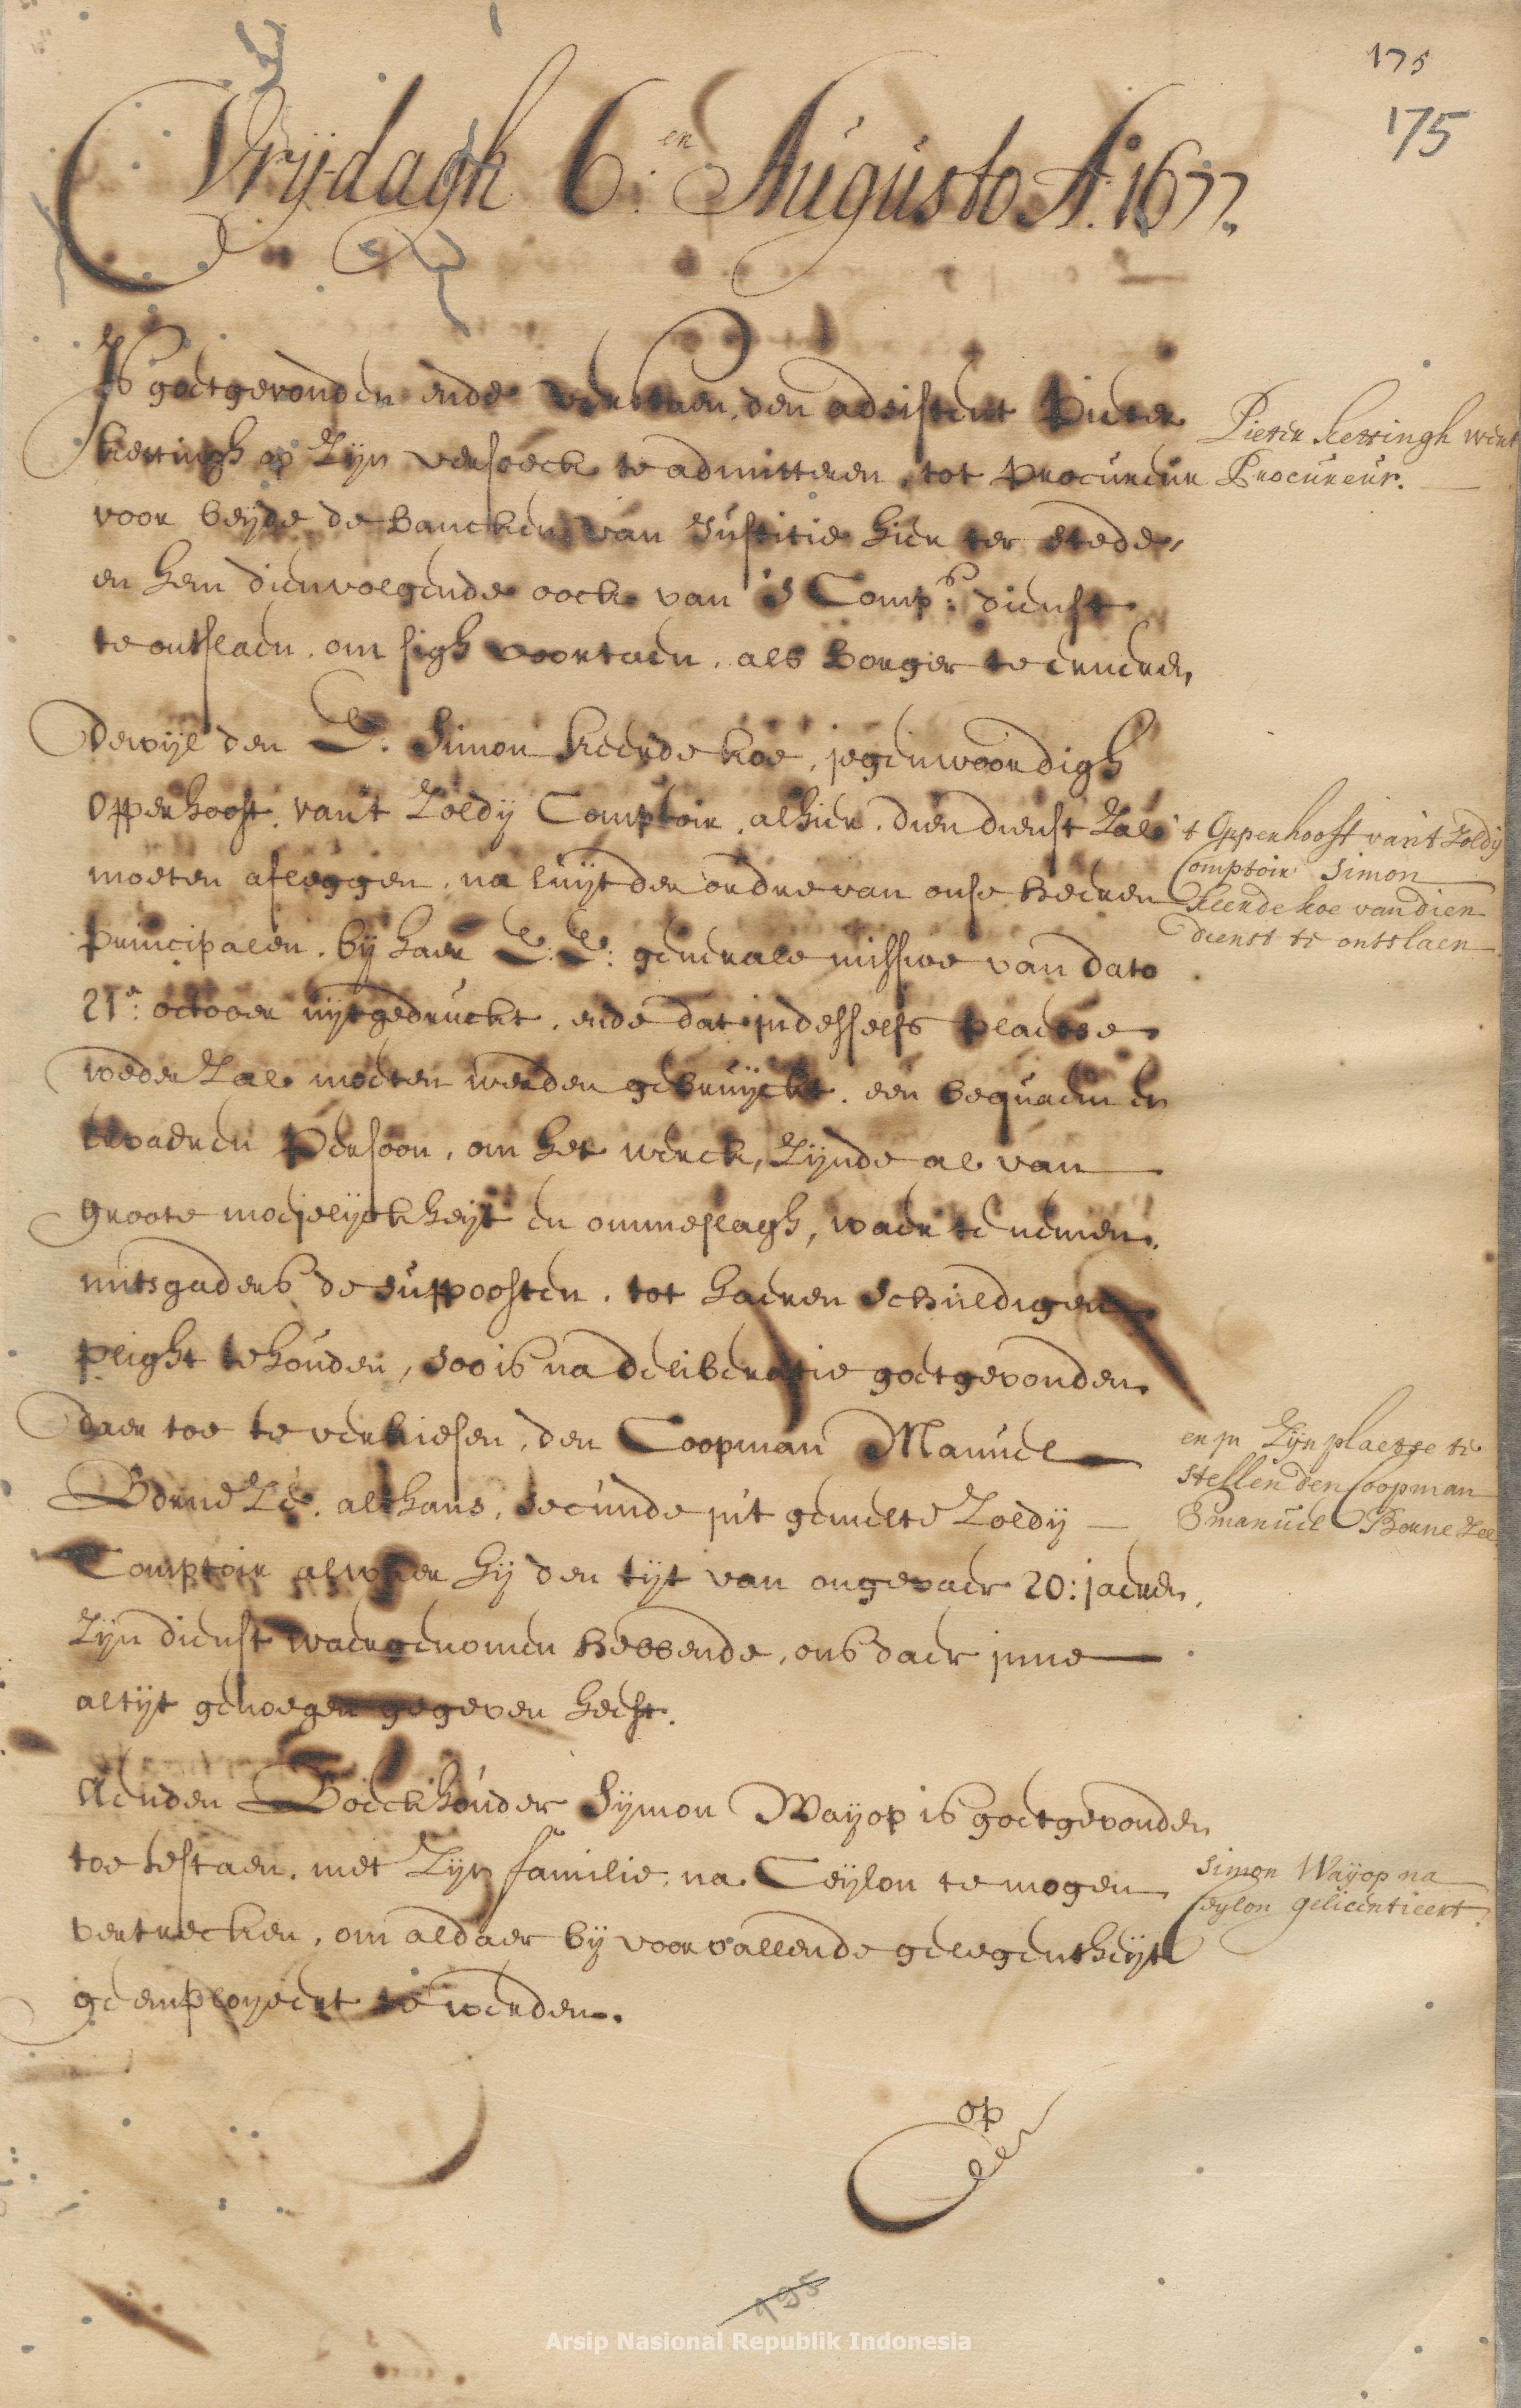 175
175
Vrijdagh 6.en Augusto A.o 1677.
Is goetgevonden ende verstaen, den adsistent Pieter
Kettingh op zijn versoeck te admitteren, tot procureur
voor beijde de bancken van Justitie hier ter stede,
en hem dienvolgende oock van 's Comp.s dienst
te ontslaen, om sigh voortaen, als borger te erneren,
Pieter Kettingh wert
Procureur.
Dewijl den E: Simon Keerdekoe, jegenwoordigh
opperhooft, van't Zoldij Comptoir, alhier, dien dienst zal
moeten afleggen, na luijt der ordre van onse heeren
principalen, bij haer E: E: generale missive van dato
21.e october uijtgedruckt, ende dat in desselfs plaetse
weder zal moeten werden gebruijckt, een bequaem en
ervaeren persoon, om het werck, zijnde al van
groote moejelijckheijt en ommeslagh, waer te nemen,
mitsgaders de suppoosten, tot haeren schuldigen
plight te houden, soo is na deliberatie goetgevonden
daer toe te verkiesen, den Coopman Manuel
Bornezee, althans, secunde in't gemelte Zoldij
Comptoir alwaer hij den tijt van ongevaer 20: jaeren,
zijn dienst waergenomen hebbende, ons daer inne
altijt genoegen gegeven heeft.
't Opperhooft van't Zoldij
Comptoir Simon
Keerdekoe van dien
dienst te ontslaen
en in zijn plaetse te
stellen den Coopman
Emanuel Bornezee
Aen den Boeckhouder Sijmon Waijop is goetgevonden
toe testaen, met zijn familie, na Ceijlon te mogen
vertrecken, om aldaer bij voorvallende gelegentheijt
geemployeert te werden.
Simon Waijop na
Ceylon gelicentieert.
op
een
195
Arsip Nasional Republik Indonesia